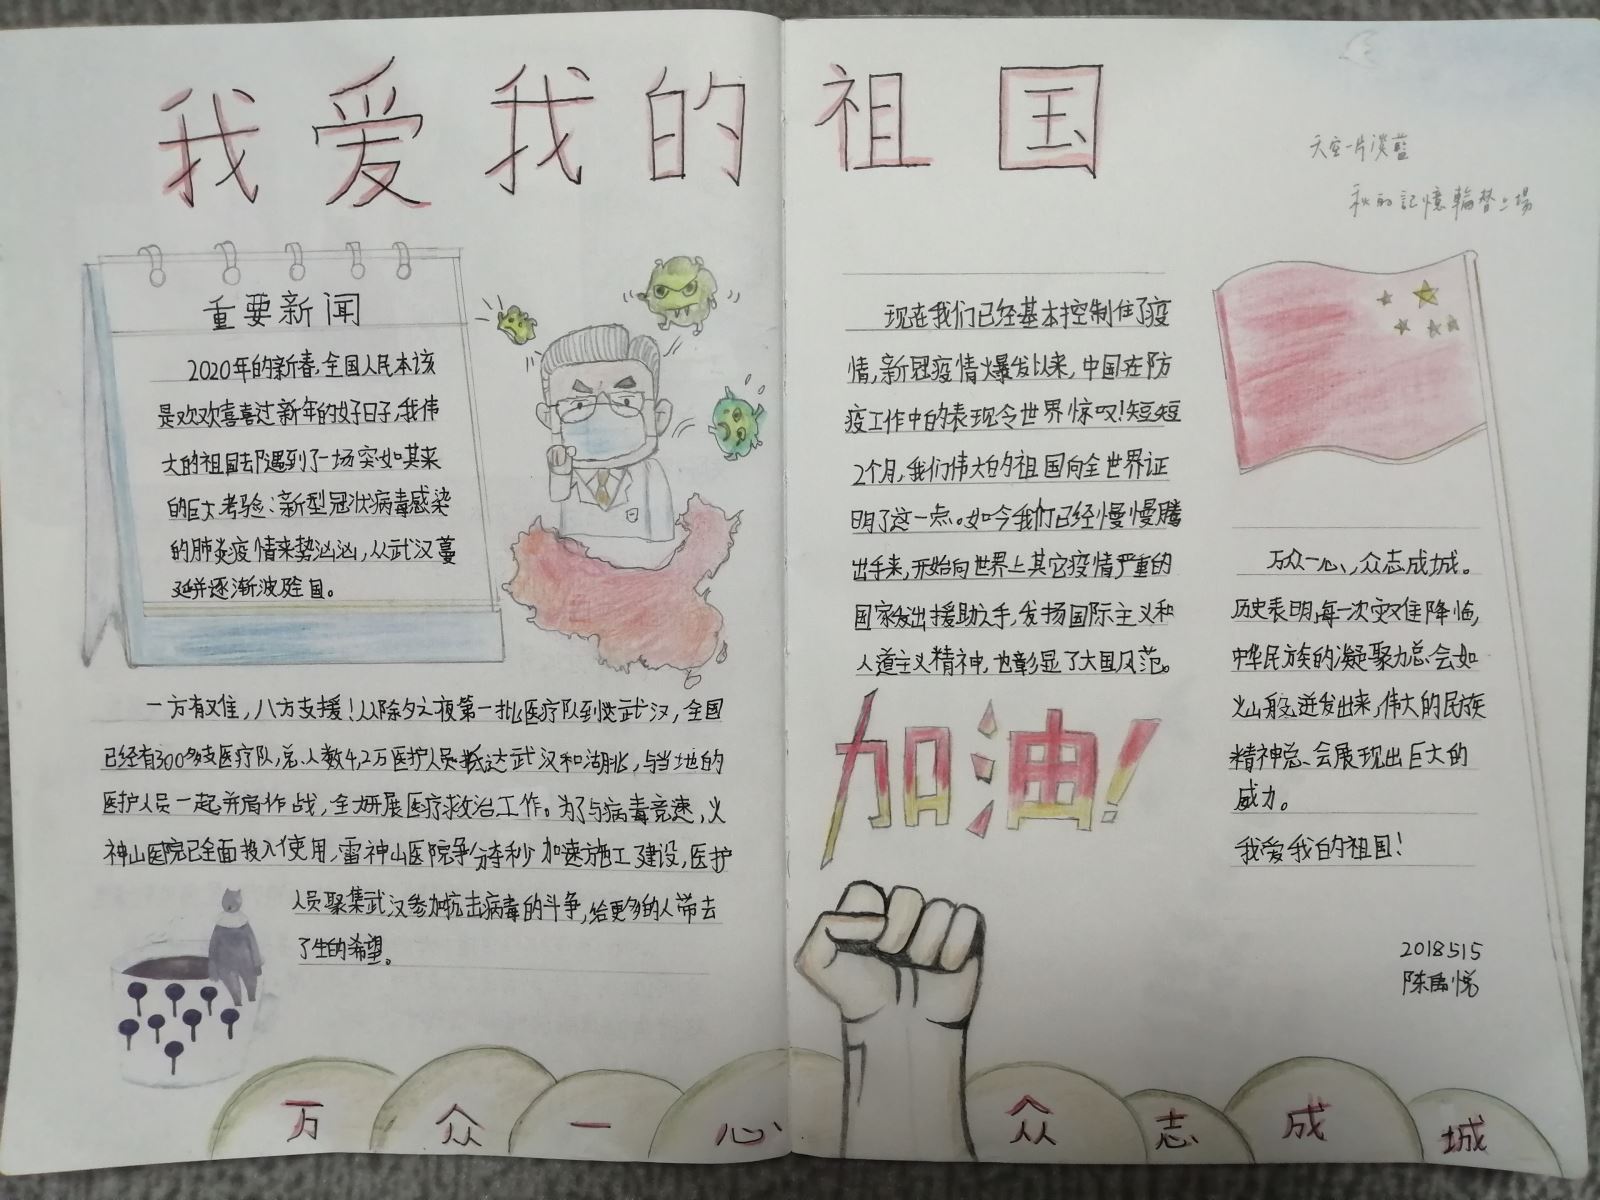 我爱我的祖国
天空一片淡藍
秋的記憶輪替上場
重要新闻
2020年的新春,全国人民本该
是欢欢喜喜过新年的好日子,我伟
大的祖国却遇到了一场突如其来
的巨大考验:新型冠状病毒感染
的肺炎疫情来势汹汹,从武汉蔓
延并逐渐波及全国。
一方有难,八方支援!从除夕之夜第一批医疗队到达武汉,全国
已经有300多支医疗队,总人数4.2万医护人员抵达武汉和湖北,与当地的
医护人员一起并肩作战,全力开展医疗救治工作。为了与病毒竞速,火
神山医院已全面投入使用,雷神山医院争分夺秒加速施工建设,医护
人员聚集武汉参加抗击病毒的斗争,给更多的人带去
了生的希望。
现在我们已经基本控制住了疫
情,新冠疫情爆发以来,中国在防
疫工作中的表现令世界惊叹!短短
2个月,我们伟大的祖国向全世界证
明了这一点。如今我们已经慢慢腾
出手来,开始向世界上其它疫情严重的
国家发出援助之手,发扬国际主义和
人道主义精神,也彰显了大国风范。
加油!
万众一心,众志成城。
历史表明,每一次灾难降临,
中华民族的凝聚力总会如
火山般迸发出来,伟大的民族
精神总会展现出巨大的
威力。
我爱我的祖国!
2018515
万众一心 众志成城